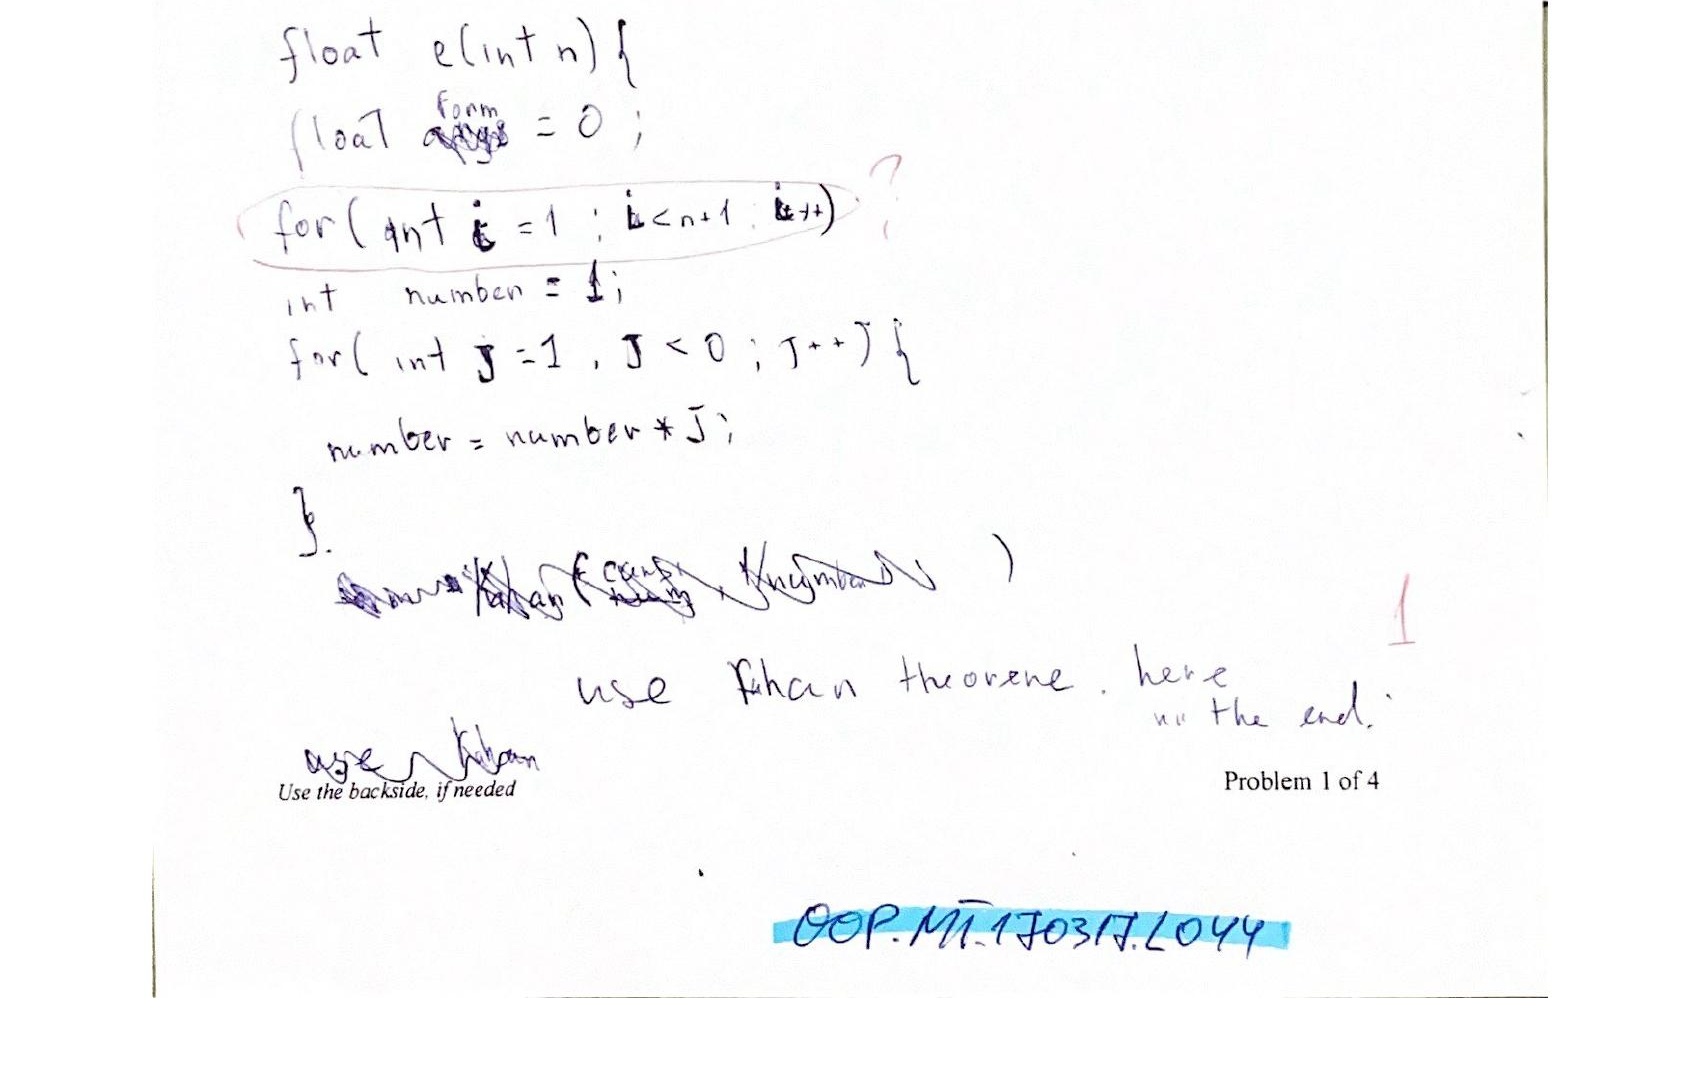 float e(int n) {
float form = 0 ;
for ( int i = 1 ; i < n+1 ; i++) ?
int number = 1;
for( int j = 1 , J < 0 ; J++) {
number = number * J;
}.
)
1
use Kahan theorene . here
the end.
use Kahan
Use the backside, if needed
Problem 1 of 4
OOP.MT.170317.L044